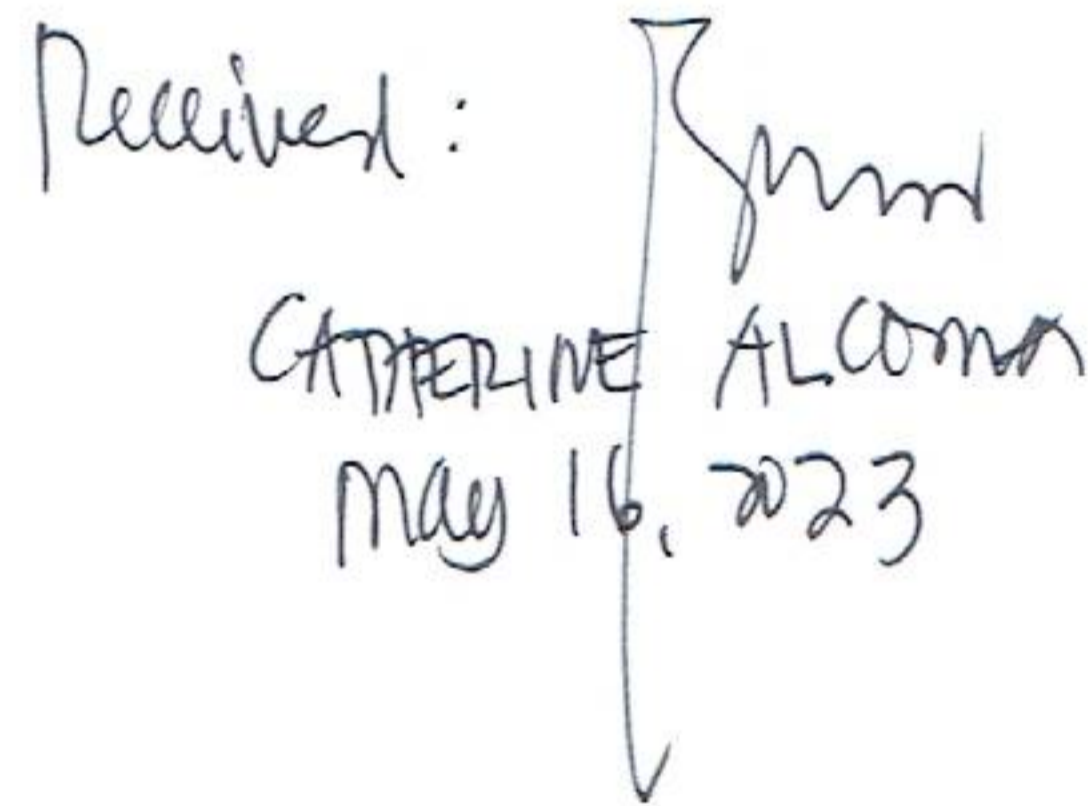 Received:
CATHERINE ALCOMA
May 16, 2023